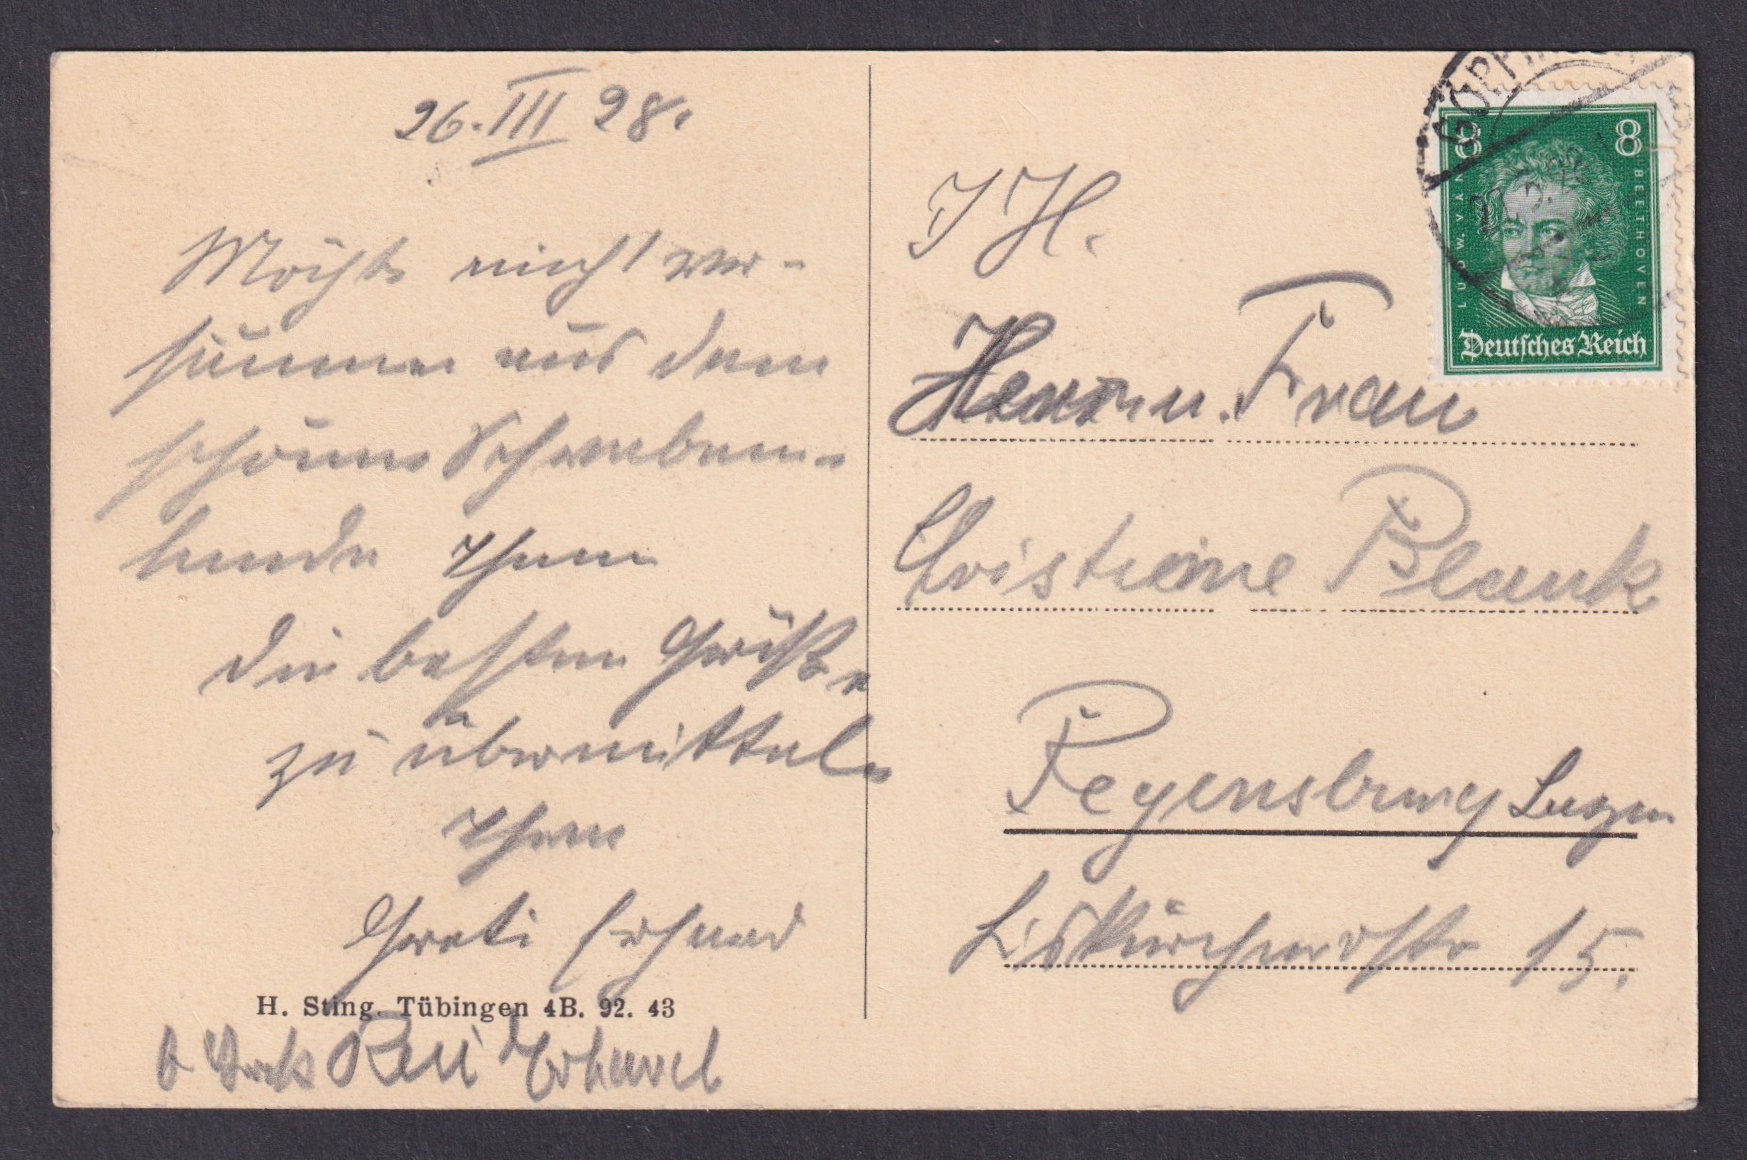 26. III 28.
Möchte nicht ver-
säumen aus dem
schönen Schwaben-
lande Ihnen
die besten Grüße
zu übermitteln
Ihre
Greti Erhard
H. Sting, Tübingen 4B. 92. 43
Erhard
I H.
Herrn u. Frau
Christiane Blank
Regensburg
15.
GÖPPINGEN
8 8
LUDW. VAN BEETHOVEN
Deutsches Reich